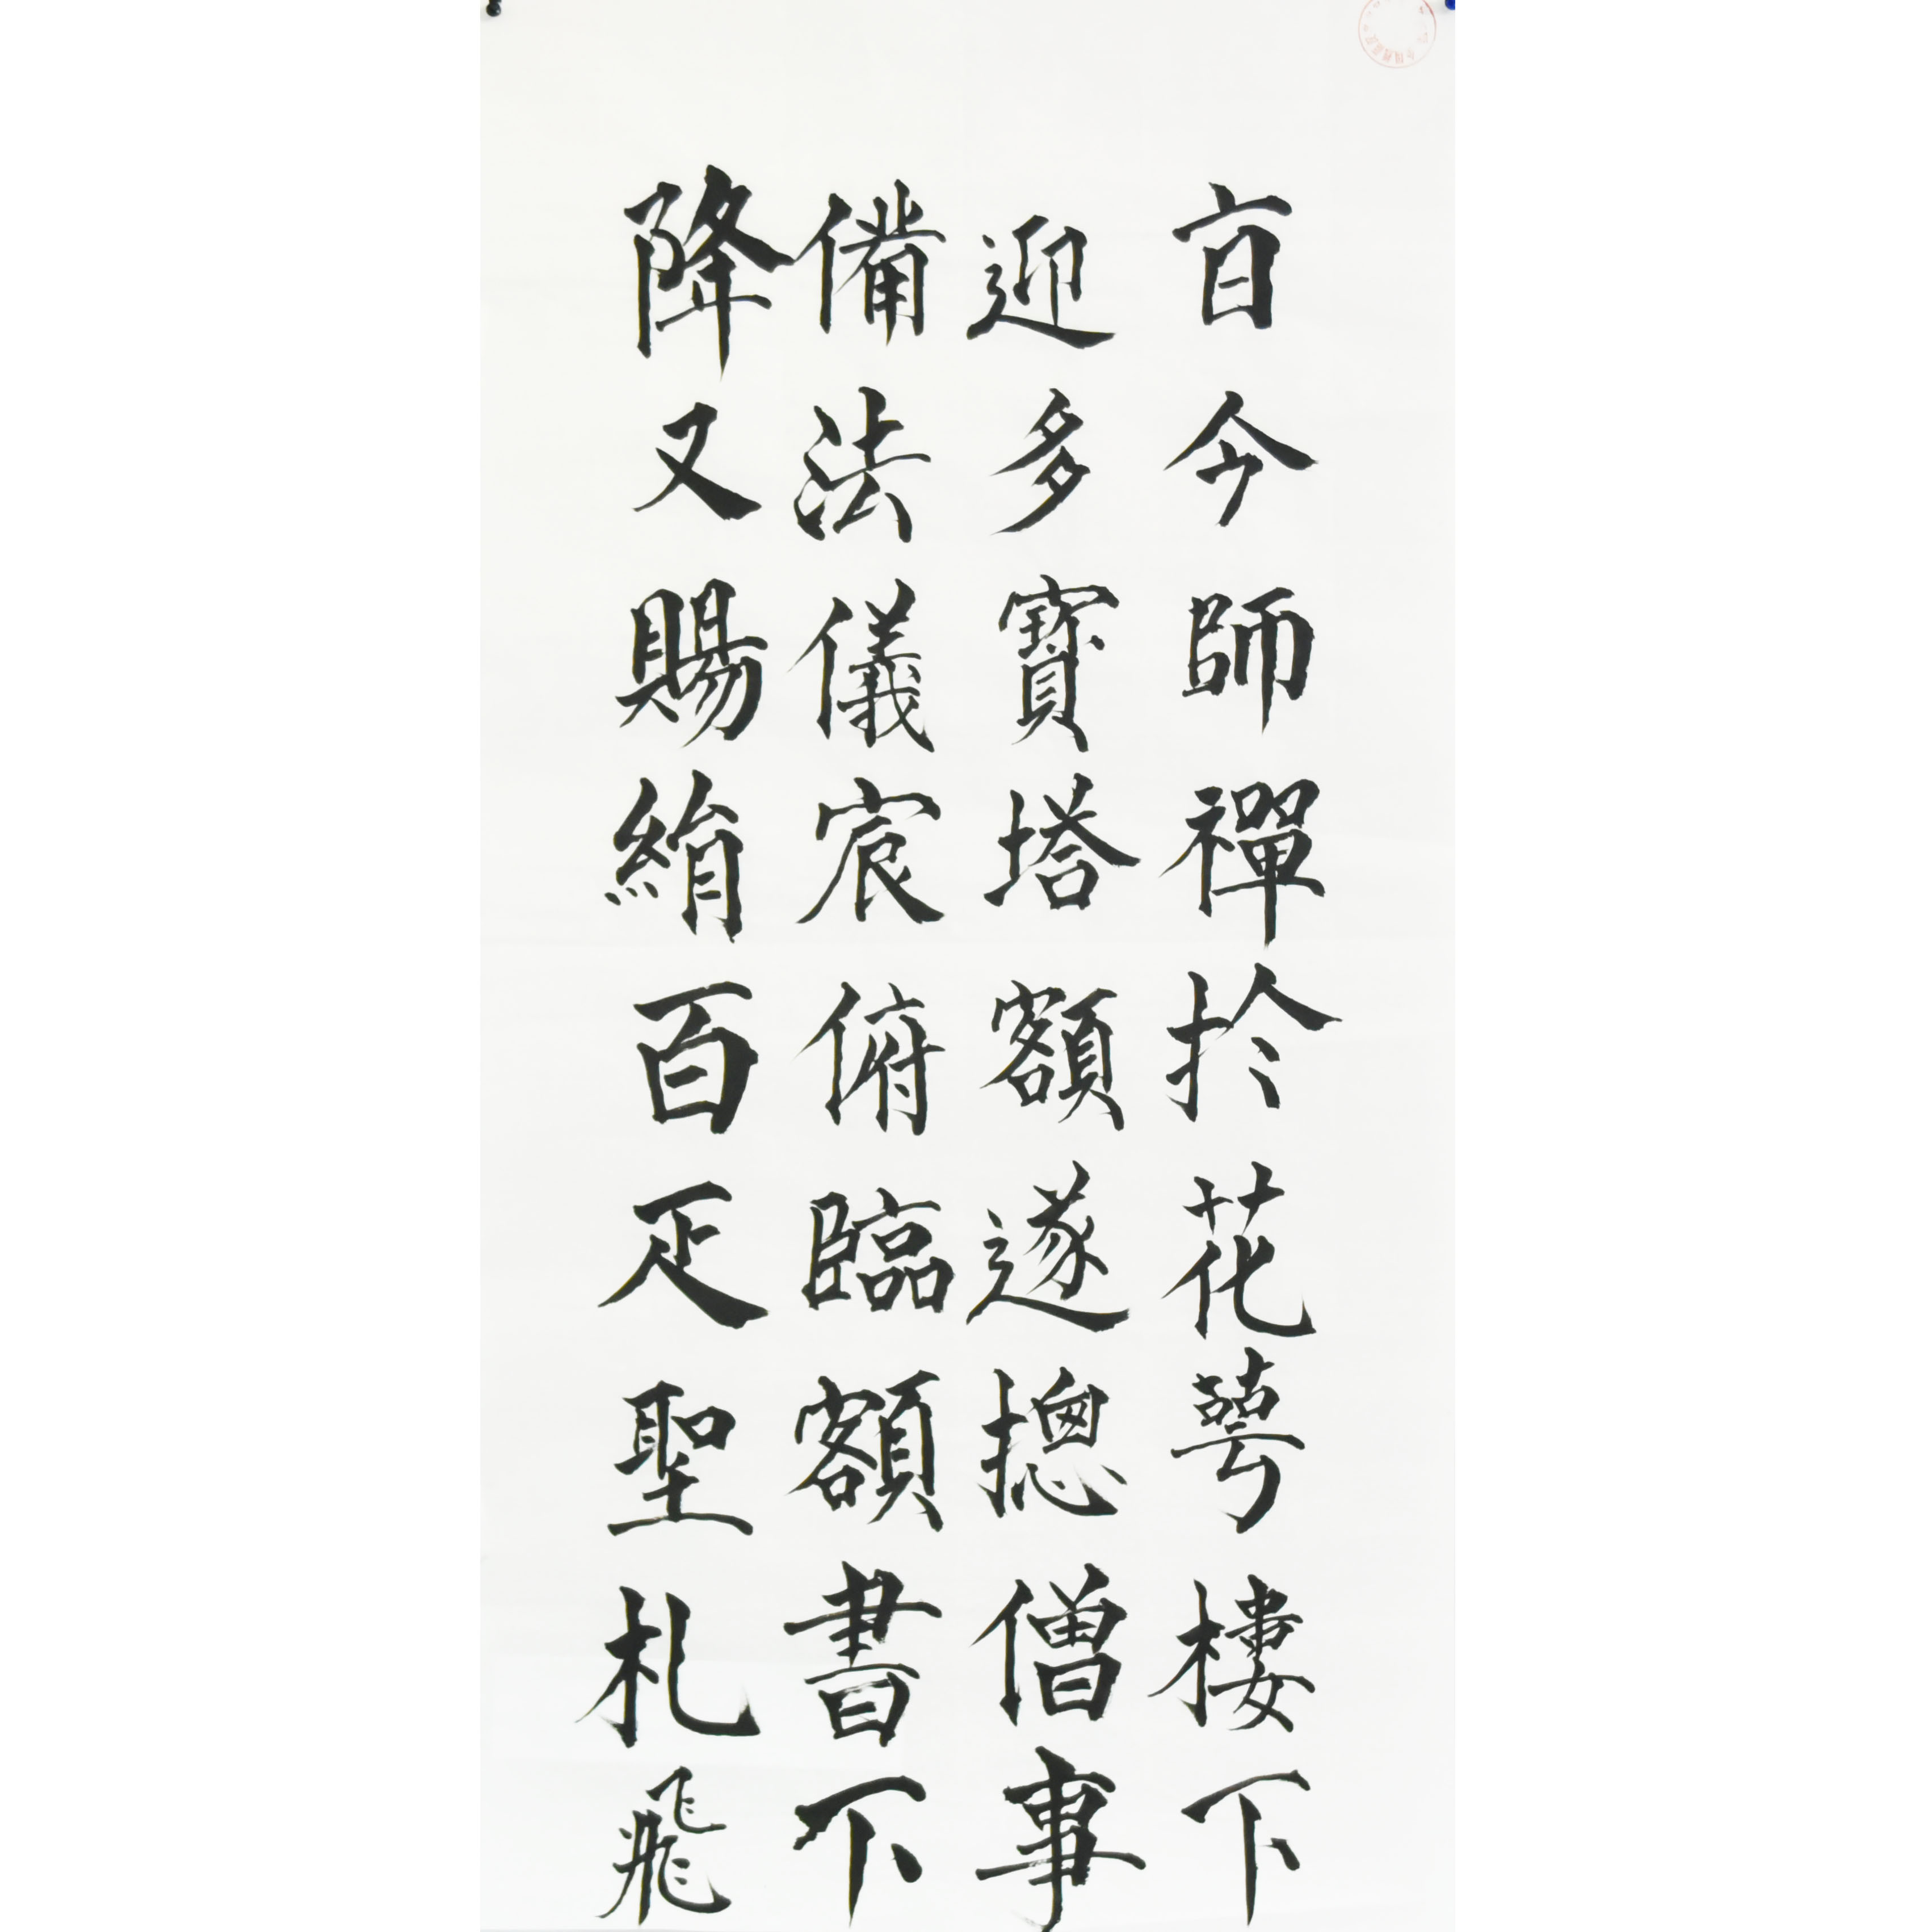 盲今師禪扵花萼樓下
迎多寶塔額遂摠僧事
備法儀宸俯臨額書下
降又賜絹百疋聖札飛